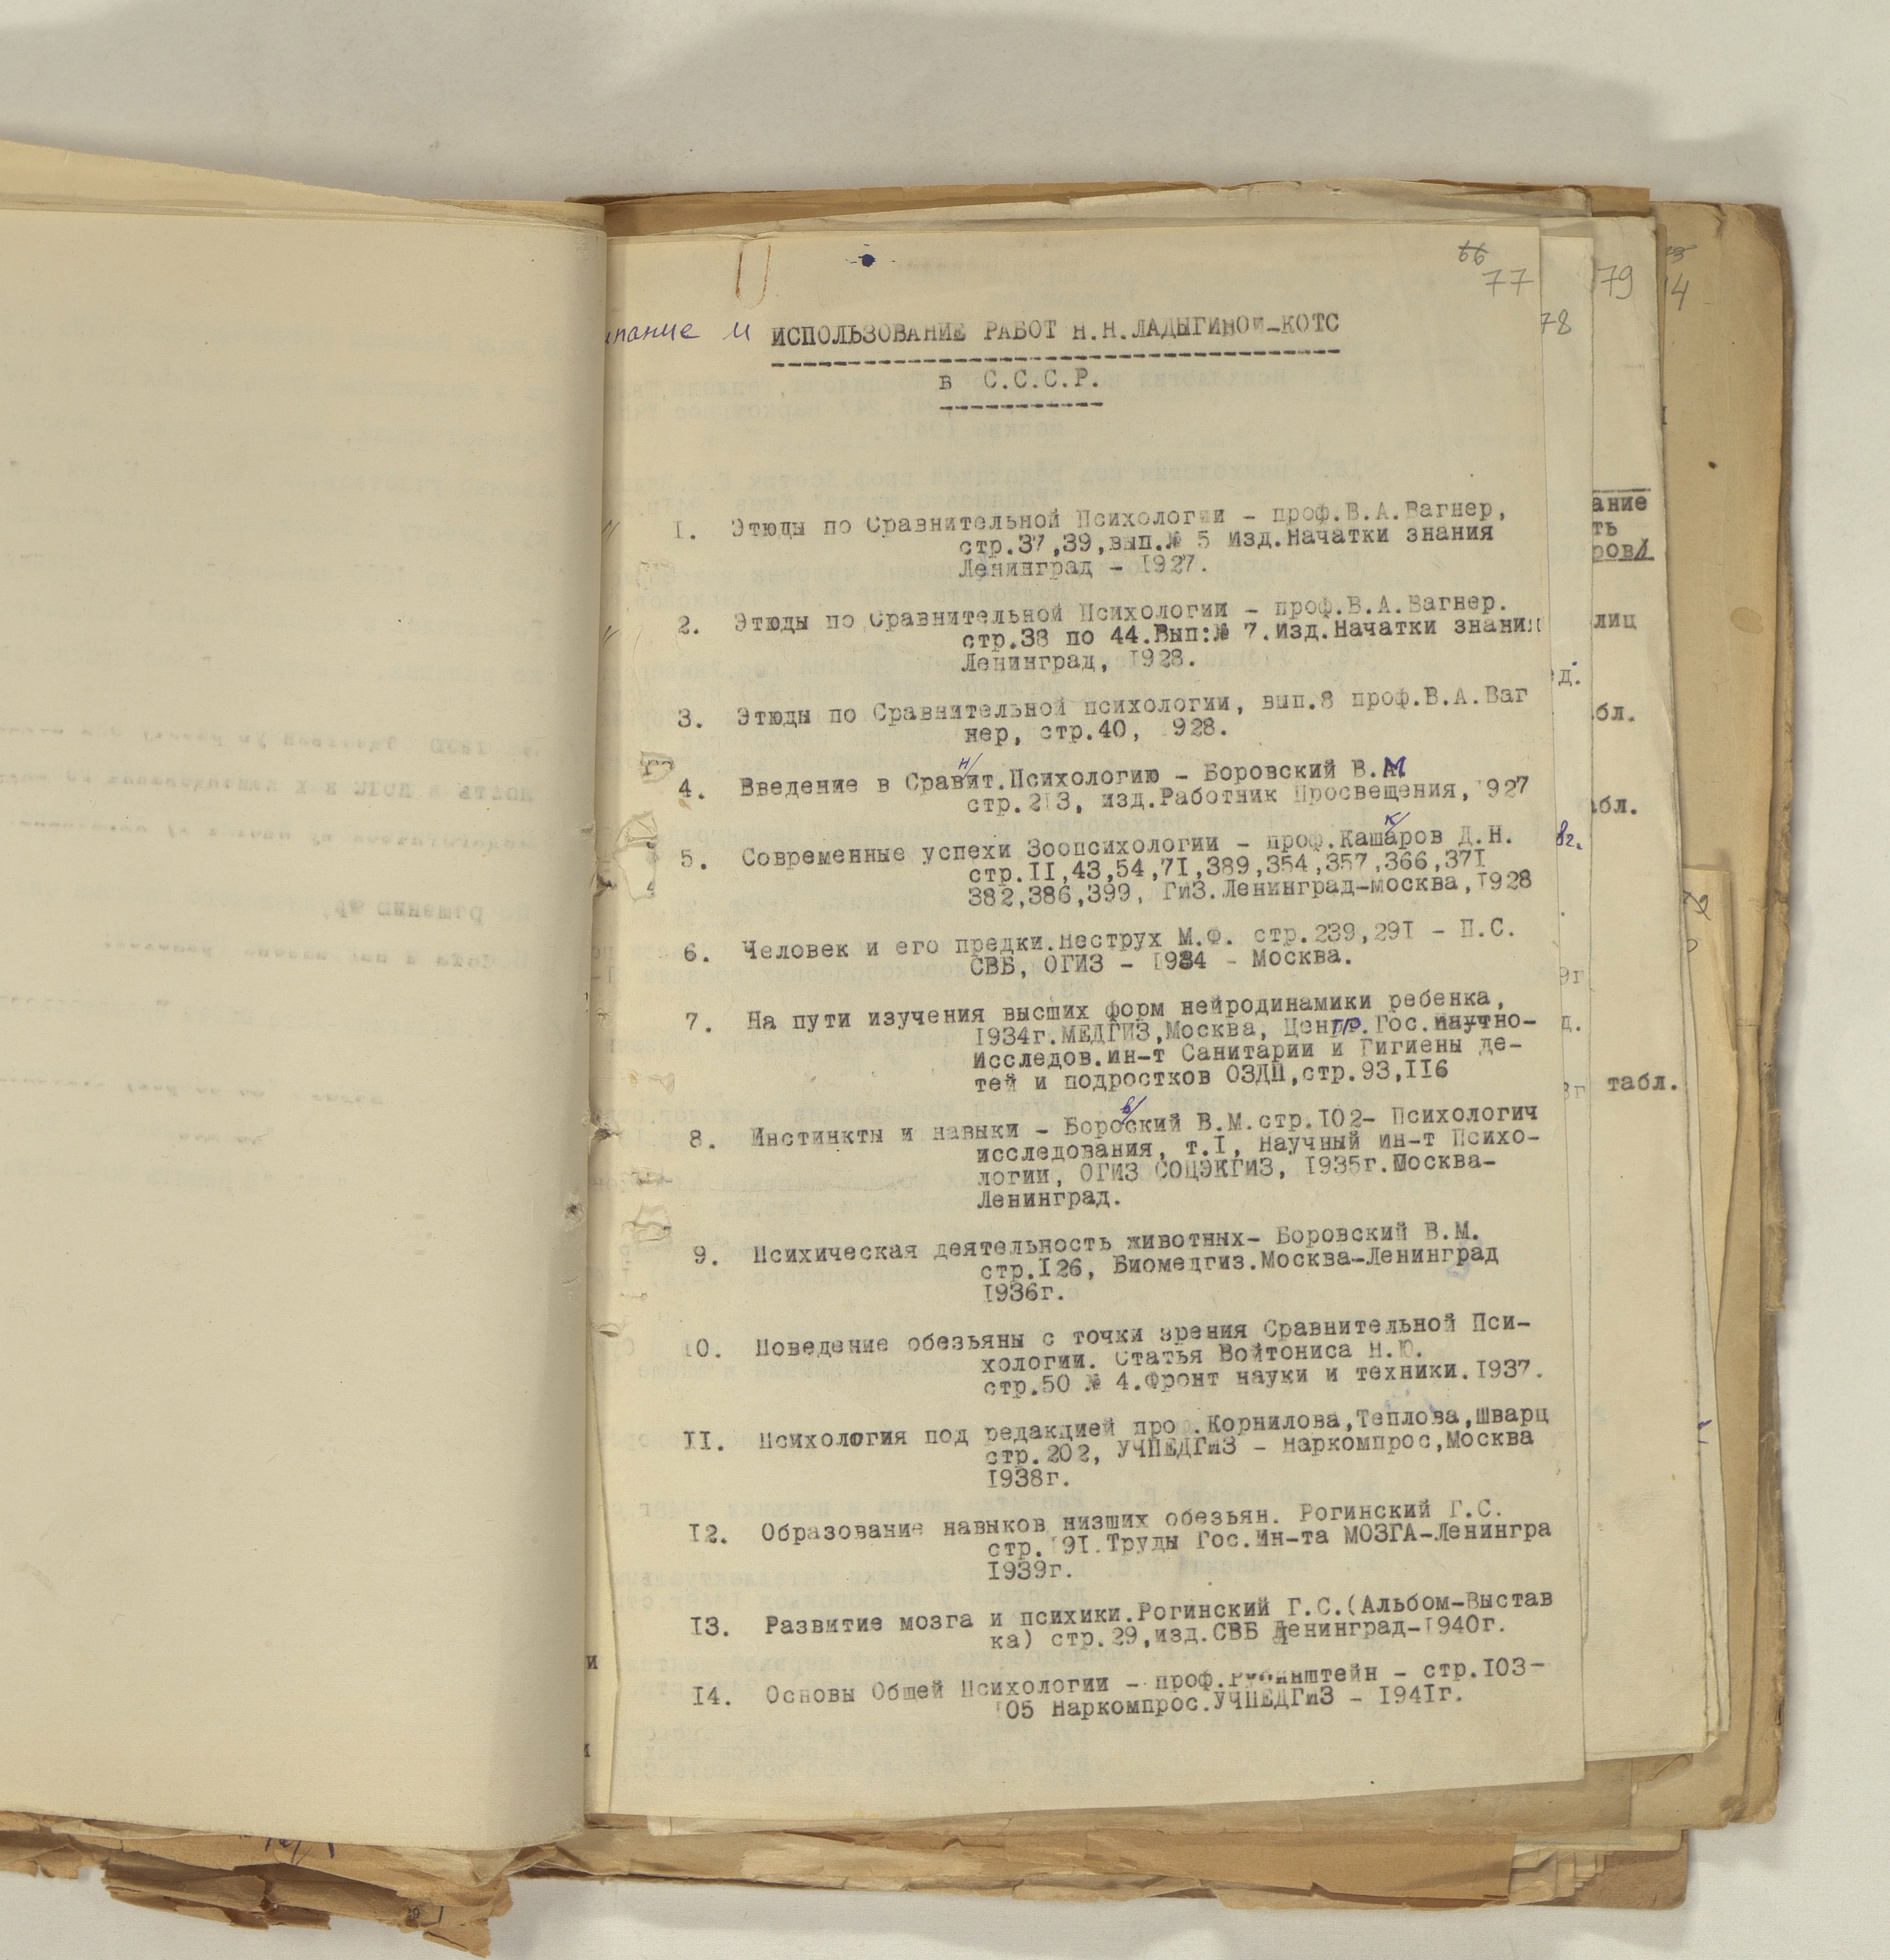 66
77
и ИСПОЛЬЗОВАНИЕ РАБОТ Н.Н.ЛАДЫГИНОЙ-КОТС
в С.С.С.Р.
1. Этюды по Сравнительной Психологии - проф.В.А.Вагнер,
стр.37,39,вып.№ 5 Изд.Начатки знания
Ленинград - 1927.
2. Этюды по Сравнительной Психологии - проф.В.А.Вагнер.
стр.38 по 44.Вып:№ 7.Изд.Начатки знания
Ленинград, 1928.
3. Этюды по Сравнительной психологии, вып.8 проф.В.А.Ваг
нер, стр.40, 1928.
4. Введение в Сравнит.Психологию - Боровский В.М.
стр.213, изд.Работник Просвещения,1927
5. Современные успехи Зоопсихологии - проф.Кашкаров Д.Н.
стр.II,43,54,7I,389,354,357,366,37I
382,386,399, ГИЗ.Ленинград-Москва,1928
6. Человек и его предки.Нестурх М.Ф. стр.239,29I - П.С.
СВБ, ОГИЗ - 1934 - Москва.
7. На пути изучения высших форм нейродинамики ребенка,
1934г.МЕДГИЗ,Москва, Центр.Гос.Научно-
Исследов.ин-т Санитарии и Гигиены де-
тей и подростков ОЗДП,стр.93,II6
8. Инстинкты и навыки - Боровский В.М.стр.I02- Психологич
исследования, т.I, Научный ин-т Психо-
логии, ОГИЗ СОЦЭКГИЗ, I935г.Москва-
Ленинград.
9. Психическая деятельность животных- Боровский В.М.
стр.I26, Биомедгиз.Москва-Ленинград
I936г.
10. Поведение обезьяны с точки зрения Сравнительной Пси-
хологии. Статья Войтониса Н.Ю.
стр.50 № 4.Фронт науки и техники.I937.
II. Психология под редакцией проф.Корнилова,Теплова,Шварц
стр.202, УЧПЕДГИЗ - Наркомпрос,Москва
I938г.
I2. Образование навыков низших обезьян. Рогинский Г.С.
стр.I9I.Труды Гос.Ин-та МОЗГА-Ленингра
I939г.
I3. Развитие мозга и психики.Рогинский Г.С.(Альбом-Выстав
ка) стр.29,изд.СВБ Ленинград-I940г.
I4. Основы Общей Психологии - проф.Рубинштейн - стр.I03-
I05 Наркомпрос.УЧПЕДГИЗ - I94Iг.
78
79
табл.